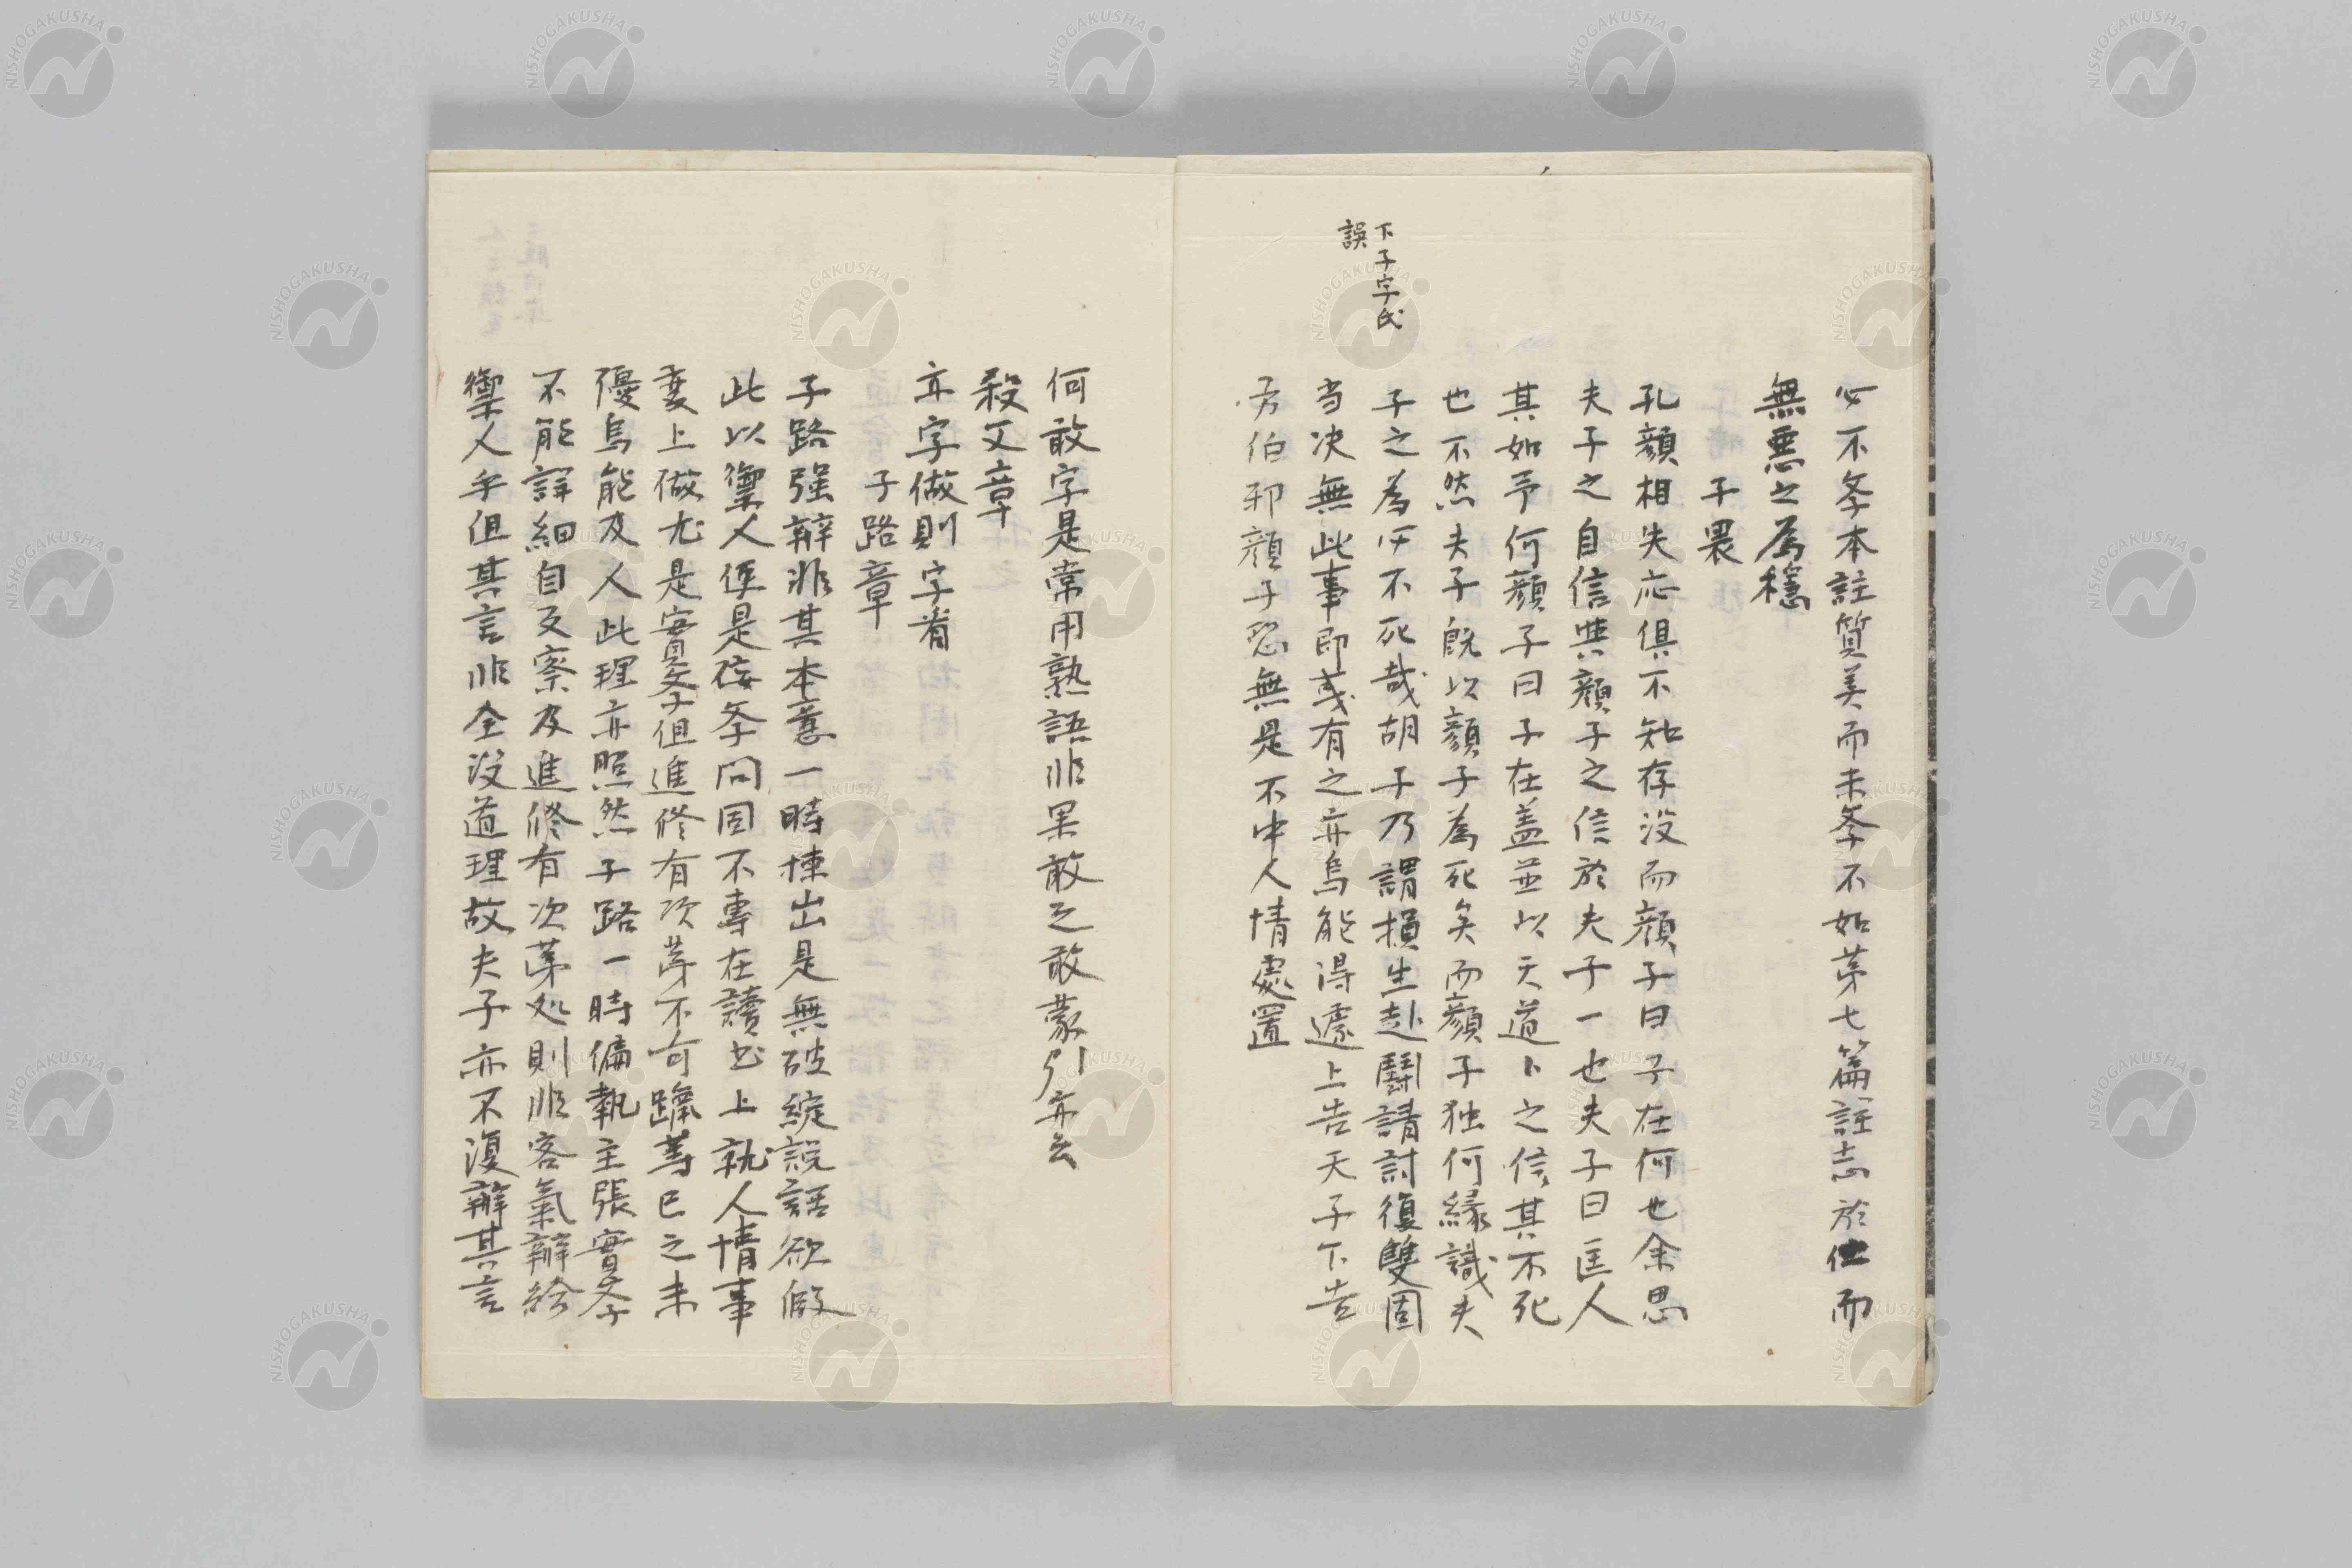 必不斈本註質美而未斈不如苐七篇註志於仁而
無悪之為穩
子畏
孔顔相失応俱不知存没而顔子曰子在何也余思
夫子之自信與顔子之信於夫子一也夫子曰匡人
其如予何顔子曰子在盖並以天道卜之信其不死
也不然夫子既以顔子為死矣而顔子独何縁識夫
子之為不死哉胡子乃謂損生赴鬪請討復讐固
当决無此事即或有之亦烏能得遽上告天子下告
方伯耶顔子恐無是不中人情處置
下子字氏
誤
何敢字是常用熟語非果敢之敢蒙引亦云
殺丈章
亦字做則字看
子路章
子路强辯非其本意一時揀出是無破綻説話欲做
此以禦人便是佞斈问固不專在讀书上就人情事
変上做尤是實斈但進修有次苐不可躐等已之未
優烏能及人此理亦照然子路一時偏執主張實斈
不能詳細自反察及進修有次苐処則非客氣辯給
禦人乎但其言非全没道理故夫子亦不復辯其言
NISHOGAKUSHA